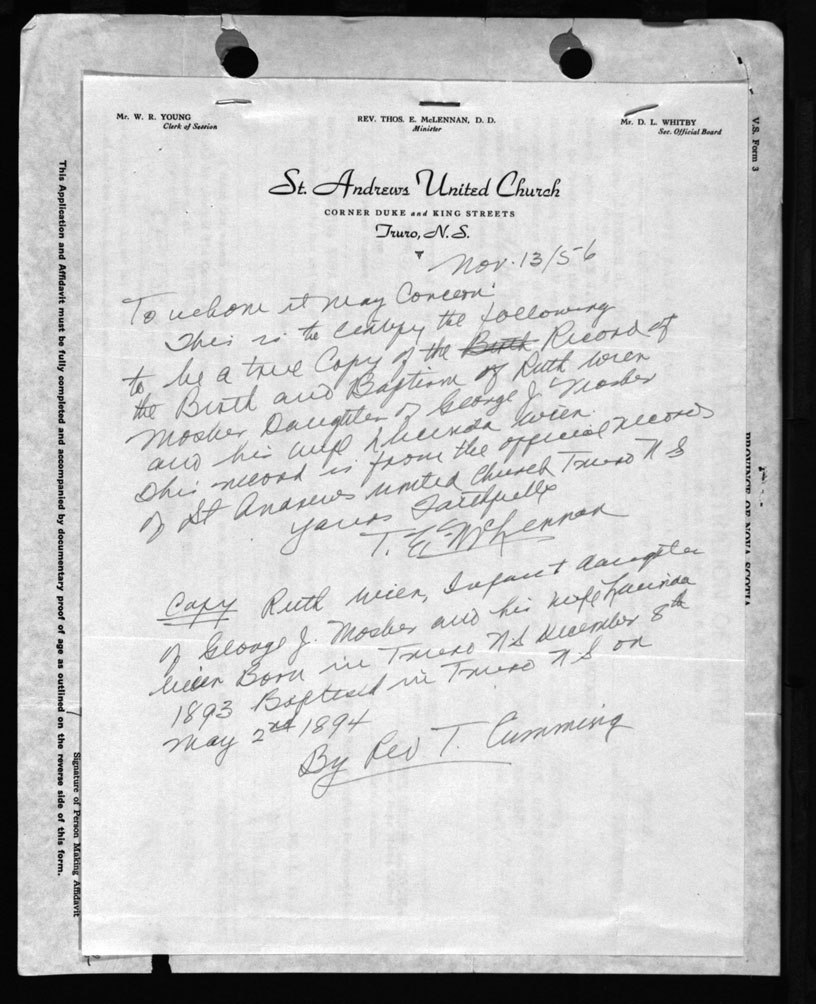 Mr. W. R. YOUNG
Clerk of Session
REV. THOS. E. McLENNAN, D. D.
Minister
Mr. D. L. WHITBY
Sec. Official Board
St. Andrews United Church
CORNER DUKE and KING STREETS
Truro, N. S.
Nov. 13/56
To whom it may Concern:
This is to Certify the following
to be a true Copy of the Birth Record of
the Birth and Baptism of Ruth Wien
Mosher Daughter of George J. Mosher
and his wife Lucinda Wien.
This record is from the official records
of St Andrews United Church Truro N S
Yours Faithfully
T. E. McLennan
Copy Ruth Wien, Infant daughter
of George J. Mosher and his wife Lucinda
Wien Born in Truro N S December 8th
1893 Baptised in Truro N S on
May 2nd 1894
By Rev T. Cumming
V.S. Form 3
PROVINCE OF NOVA SCOTIA
This Application and Affidavit must be fully completed and accompanied by documentary proof of age as outlined on the reverse side of this form.
Signature of Person Making Affidavit